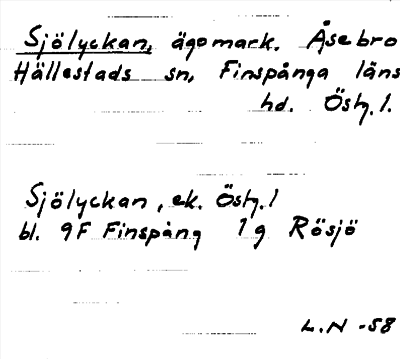 Sjölyckan, ägomark. Åsebro
Hällestads sn, Finspånga läns
hd. Östg. l.
Sjölyckan, ek. Östg. l
bl. 9F Finspång 1g Rösjö
L.N -58